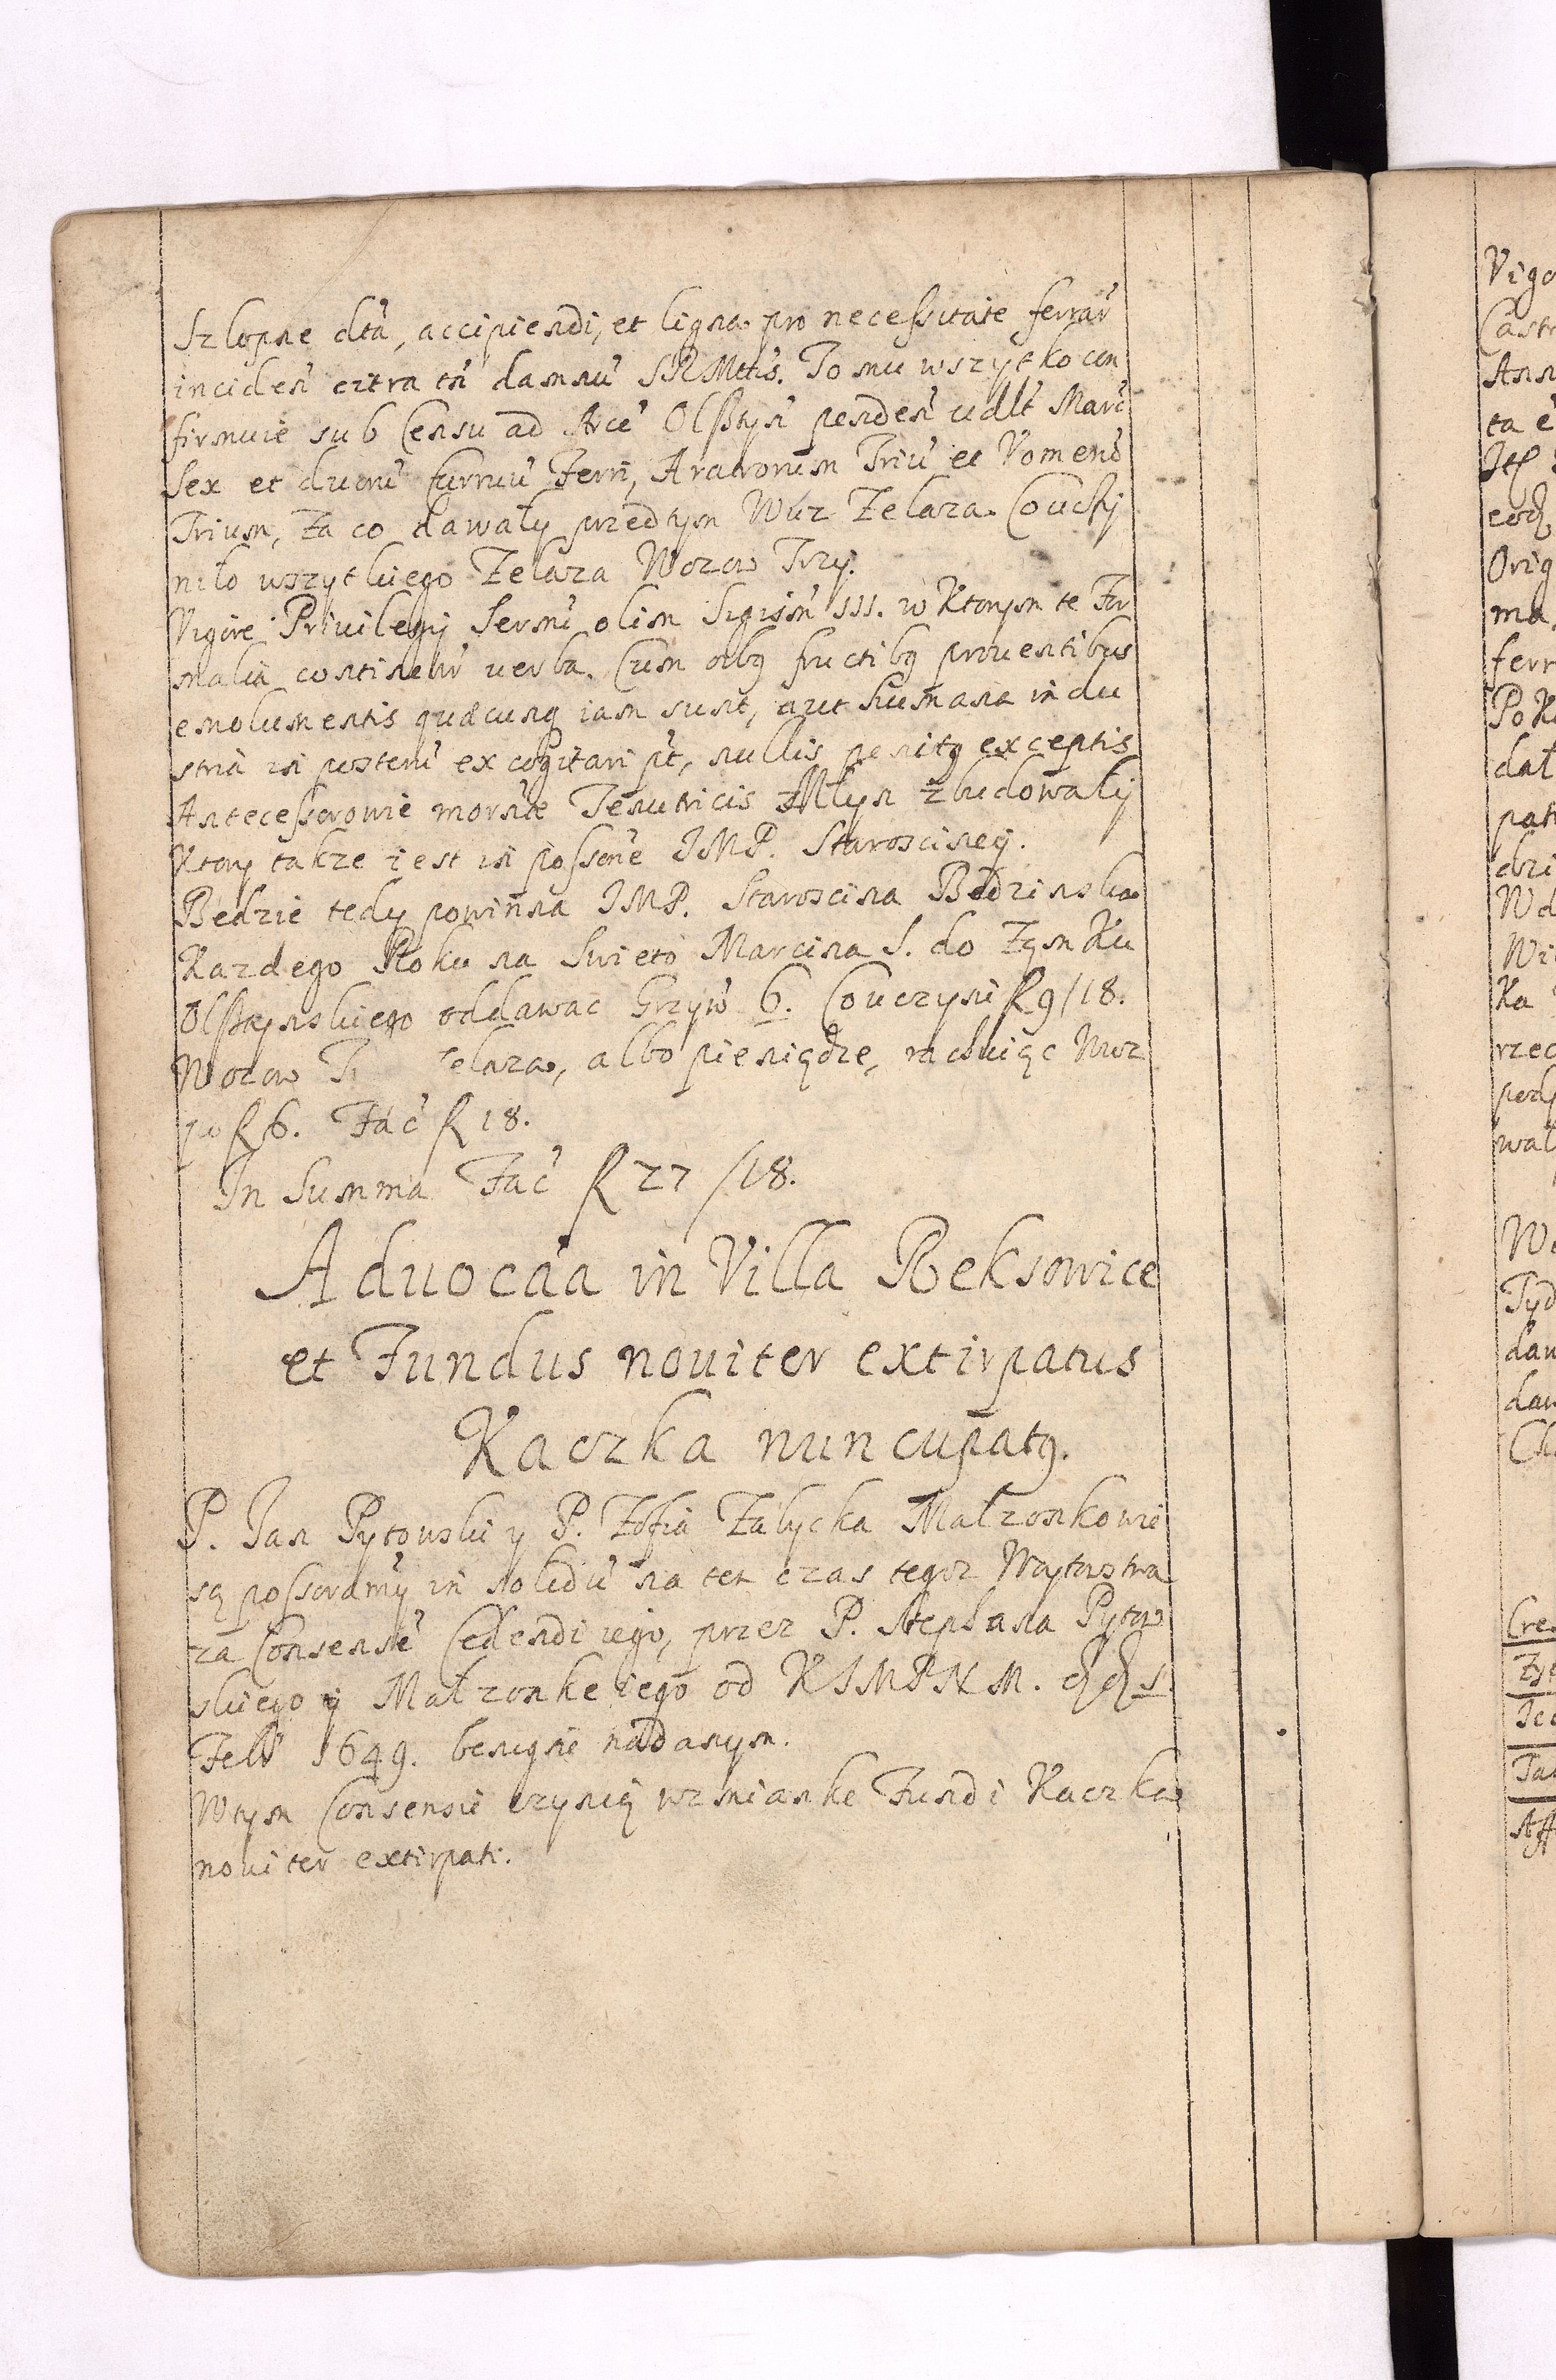 Szlopne dtã, accipiendi, et ligna pro necessitate ferrar̃
inciden̄ citra tn̄ damnũ SRMttis. To mu wszytko con
firmuie sub Censu ad Arcẽ Olsztyn̄ penden̄ vdlt Marc̃
Sex et duorũ Curruũ Ferri, Aratrorum Triũ et Vomerũ
Trium, Za co dawały przedtym Wuz Zelaza. Couczy
niło wszytkiego Zelaza Wozow Trzy.
Vigore Priuilegij Sermi olim Sigism̄ III. w Ktorym te For
malia continent̃ verba. Cum oibq fructibq prouentibus
emolumentis quæcunq iam sunt, aut humana indu
stria in posterũ excogitari pt̃, nullis penitq exceptis
Antecessorowie mornæ Tenutricis Młyn zbudowały
Ktory takze iest in possone JMP. Starosciney.
Bedzie tedy powinna JMP. Staroscina Bedzinska
Kazdego Roku na Swieto Marcina S. do Zamku
Olsztynskiego oddawac Grzyw̃ 6. Couczyni f 9/18.
Wozow T elaza, albo pieniądze, rachuiąc Wuz
po f 6. Fac̃ f 18.
In Summa Fac̃ f 27/18.
Aduocãa in Villa Reksowice
et Fundus nouiter extirpatus
Kaczka nuncupatq.
P. Jan Pytowski y P. Zofia Zalycka Małzonkowie
są possoramĩ in solidũ na ten czas tegoz Woytostwa
za Consensẽ Cedendi iego, przez P. Stephana Pytow
skiego y Małzonke iego od KJMPNM.
Feb̃ 1649. benigne nadanym.
Wtym Consensie czynią wzmianke Fundi Kaczka
nouiter extirpati.
Vigo
Castr
Ann
ta ẽ
Orig
ma
ferr
PoKa
dal
pat
dzi
Wd
Wi
Ka
rzec
wal
Tyd
daw
daw
Cre